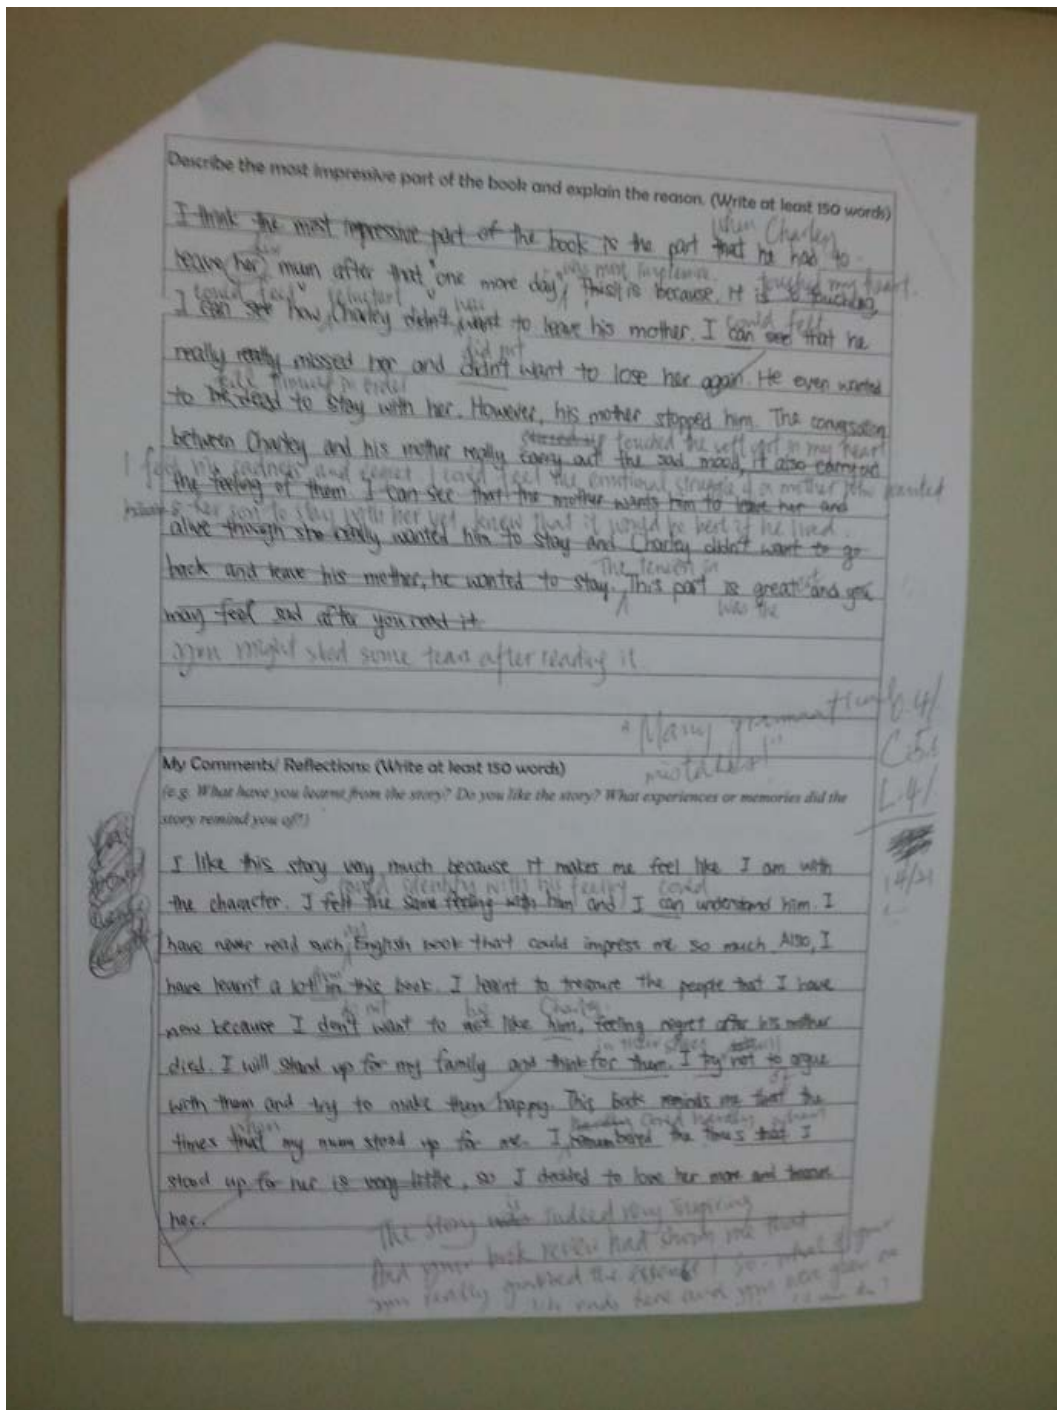 Describe the most impressive part of the book and explain the reason. (Write at least 150 words)
when Charley
I think the most impressive part of the book is the part that he had to
leave her mum after that "one more day". This is because it is so touching.
touched my heart.
could feel reluctant
I can see how Charley didn't want to leave his mother. I can see that he
could felt
did not
really really missed her and didn't want to lose her again. He even wanted
in order
to be dead to stay with her. However, his mother stopped him. The conversation
touched the soft part in my heart
between Charley and his mother really carry out the sad mood, it also carry out
I felt his sadness and I could feel the emotional struggle of a mother who wanted
the feeling of them. I can see that the mother wants him to leave her and
her son to stay with her yet knew that it would be best if he lived.
alive though she really wanted him to stay and Charley didn't want to go
back and leave his mother, he wanted to stay. This part is great and you
was the
may feel sad after you read it.
you might shed some tears after reading it.
"Many grammatical
mistakes!"
C:5
L:4/
14/21
My Comments/ Reflections: (Write at least 150 words)
(e.g. What have you learnt from the story? Do you like the story? What experiences or memories did the
story remind you of?)
I like this story very much because it makes me feel like I am with
could identify with his feeling could
the character. I felt the same feeling with him and I can understand him. I
have never read such English book that could impress me so much. Also, I
have learnt a lot in this book. I learnt to treasure the people that I have
do not be Charley
now because I don't want to not like him, feeling regret after his mother
died. I will stand up for my family and think for them. I try not to argue
with them and try to make them happy. This book reminds me that the
of
when hardly when
times that my mum stood up for me. I remembered the times that I
stood up for her is very little, so I decided to love her more and treasure
her.
The story is indeed very inspiring
And your book review had shown me that
you really grabbed the essence! So, what if your
ends here and you were given